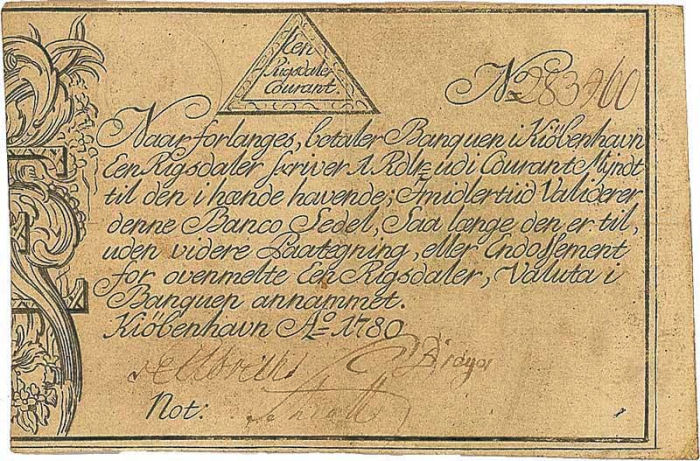 Een
Rigsdaler
Courant.
No 283460
Naar forlanges, betaler Banquen i Kiöbenhavn
Een Rigsdaler skriver 1 Rdlr udi Courant Myndt
til den i hænde havende; Imidlertiid Validerer
denne Banco Sedel, Saa længe den er til,
uden videre Paategning, eller Endossement
for ovenmelte Een Rigsdaler, Valuta i
Banquen annammet.
Kiöbenhavn Ao 1780
Not: